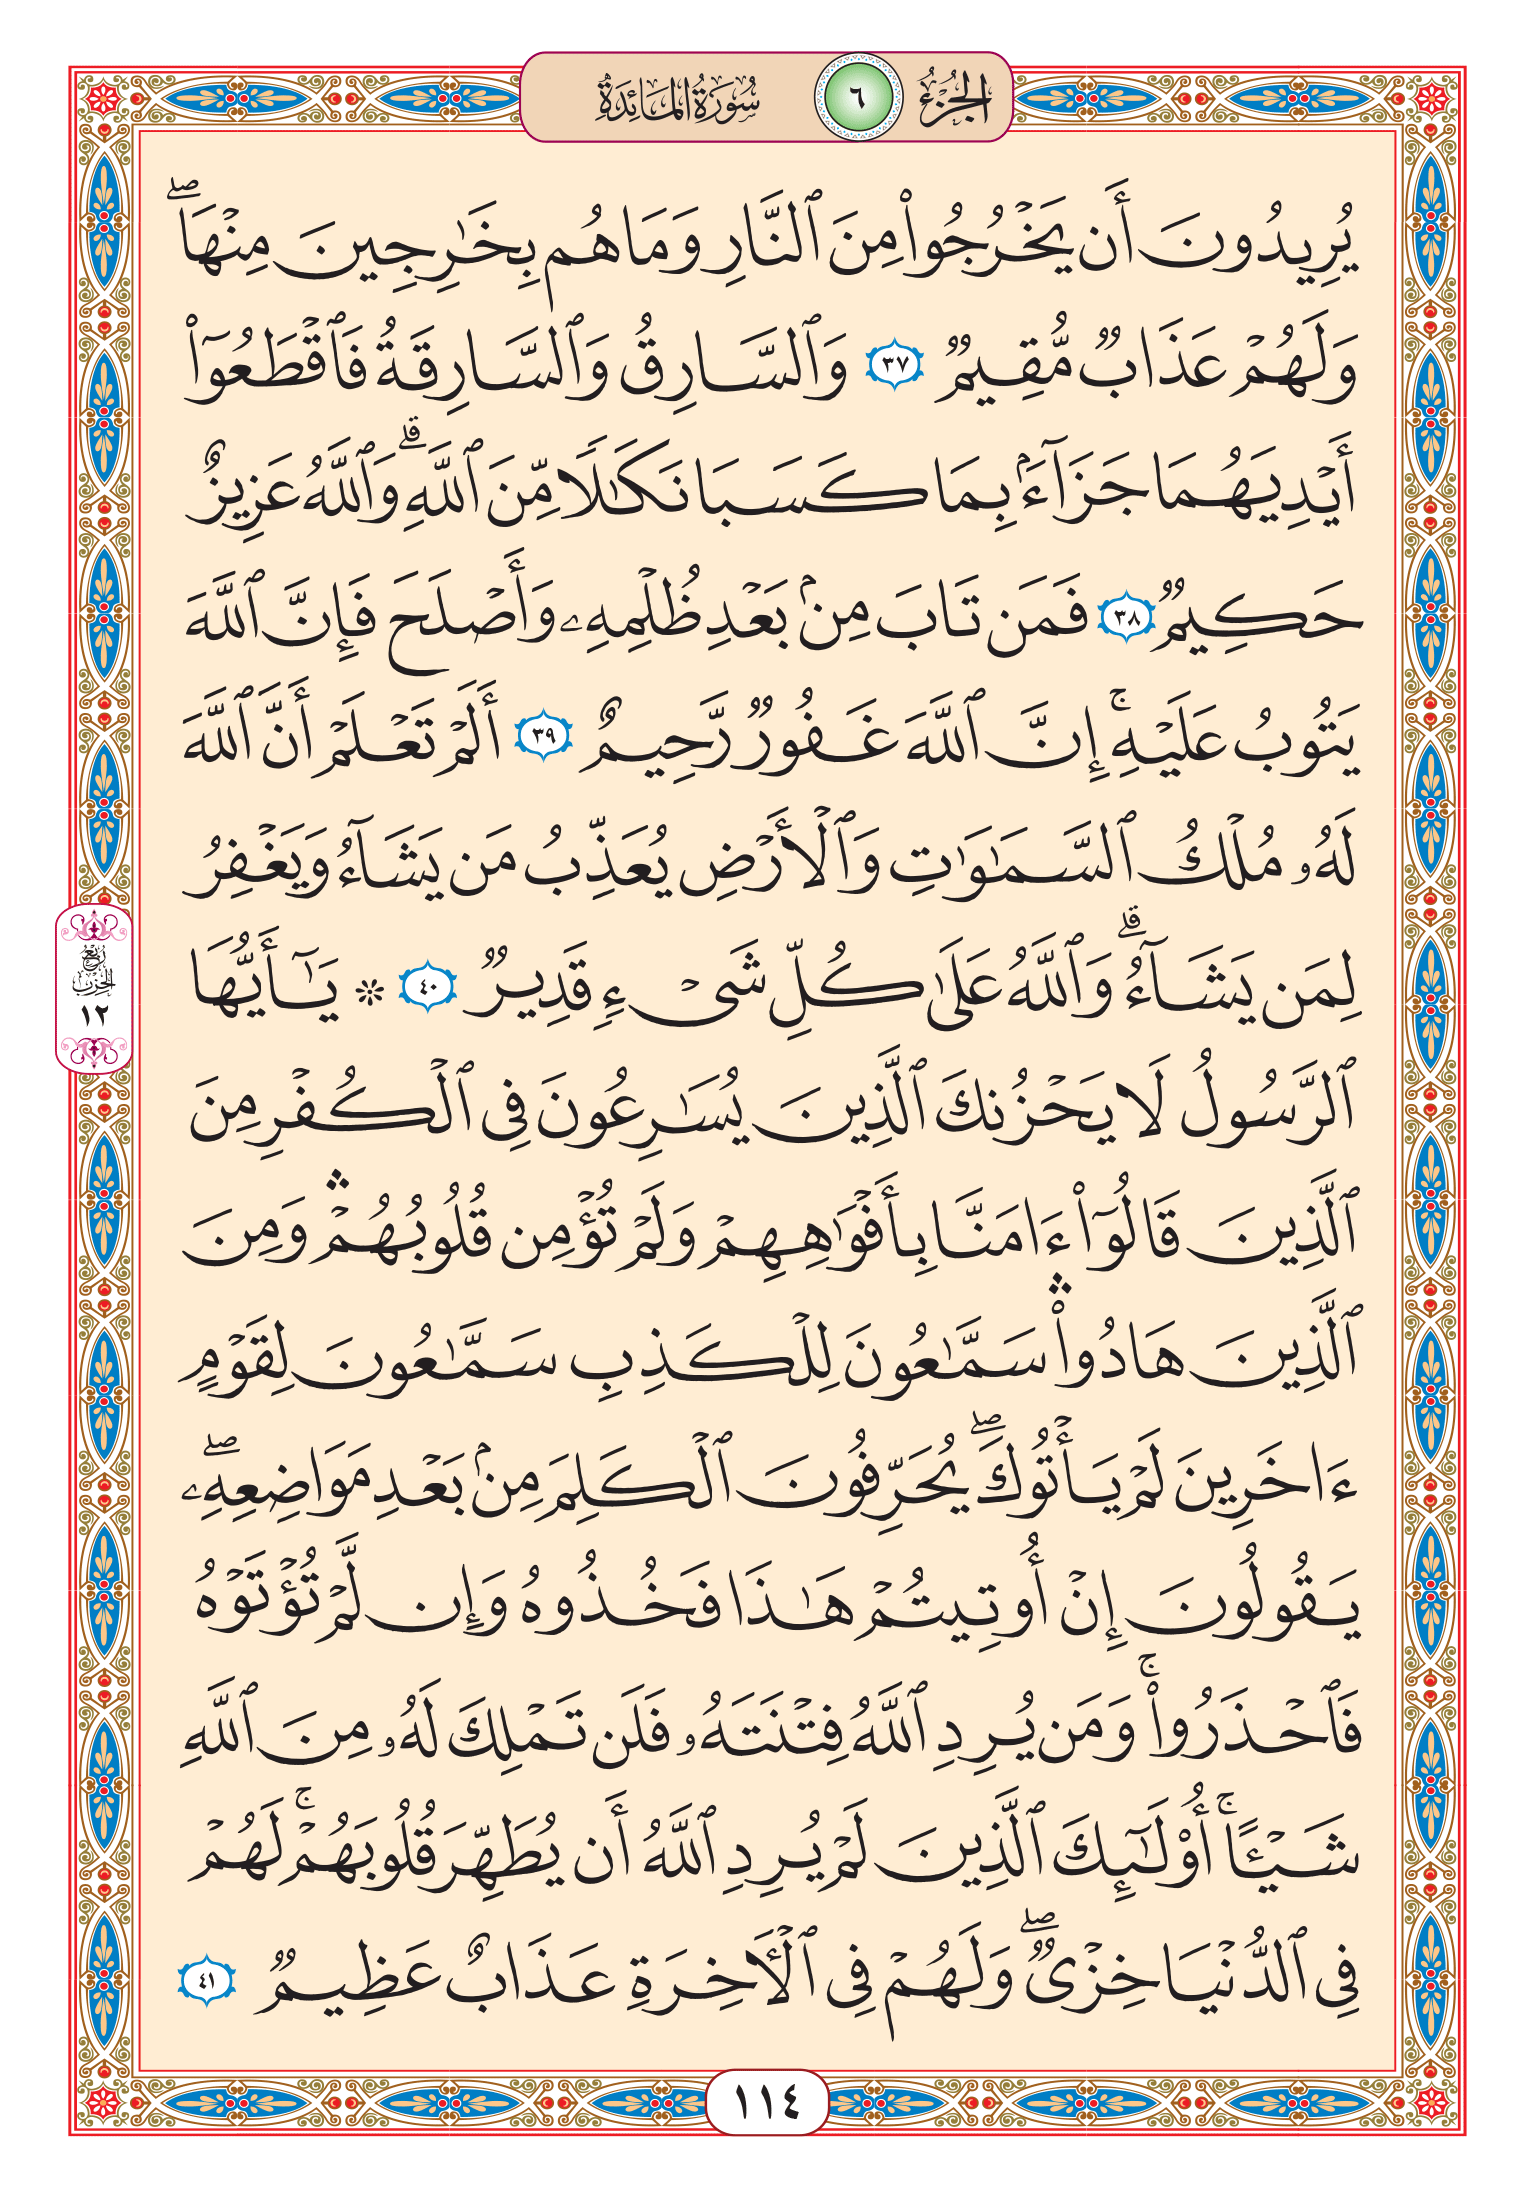 الجُزْءُ ٦ سُورَةُ المَائِدَةِ
يُرِيدُونَ أَن يَخْرُجُوا۟ مِنَ ٱلنَّارِ وَمَا هُم بِخَٰرِجِينَ مِنْهَا ۖ
وَلَهُمْ عَذَابٌ مُّقِيمٌ ٣٧ وَٱلسَّارِقُ وَٱلسَّارِقَةُ فَٱقْطَعُوٓا۟
أَيْدِيَهُمَا جَزَآءَۢ بِمَا كَسَبَا نَكَٰلًا مِّنَ ٱللَّهِ ۗ وَٱللَّهُ عَزِيزٌ
حَكِيمٌ ٣٨ فَمَن تَابَ مِنۢ بَعْدِ ظُلْمِهِۦ وَأَصْلَحَ فَإِنَّ ٱللَّهَ
يَتُوبُ عَلَيْهِ ۚ إِنَّ ٱللَّهَ غَفُورٌ رَّحِيمٌ ٣٩ أَلَمْ تَعْلَمْ أَنَّ ٱللَّهَ
لَهُۥ مُلْكُ ٱلسَّمَٰوَٰتِ وَٱلْأَرْضِ يُعَذِّبُ مَن يَشَآءُ وَيَغْفِرُ
لِمَن يَشَآءُ ۗ وَٱللَّهُ عَلَىٰ كُلِّ شَىْءٍ قَدِيرٌ ٤٠ ۞ يَٰٓأَيُّهَا
ٱلرَّسُولُ لَا يَحْزُنكَ ٱلَّذِينَ يُسَٰرِعُونَ فِى ٱلْكُفْرِ مِنَ
ٱلَّذِينَ قَالُوٓا۟ ءَامَنَّا بِأَفْوَٰهِهِمْ وَلَمْ تُؤْمِن قُلُوبُهُمْ ۛ وَمِنَ
ٱلَّذِينَ هَادُوا۟ ۛ سَمَّٰعُونَ لِلْكَذِبِ سَمَّٰعُونَ لِقَوْمٍ
ءَاخَرِينَ لَمْ يَأْتُوكَ ۖ يُحَرِّفُونَ ٱلْكَلِمَ مِنۢ بَعْدِ مَوَاضِعِهِۦ ۖ
يَقُولُونَ إِنْ أُوتِيتُمْ هَٰذَا فَخُذُوهُ وَإِن لَّمْ تُؤْتَوْهُ
فَٱحْذَرُوا۟ ۚ وَمَن يُرِدِ ٱللَّهُ فِتْنَتَهُۥ فَلَن تَمْلِكَ لَهُۥ مِنَ ٱللَّهِ
شَيْـًٔا ۚ أُو۟لَٰٓئِكَ ٱلَّذِينَ لَمْ يُرِدِ ٱللَّهُ أَن يُطَهِّرَ قُلُوبَهُمْ ۚ لَهُمْ
فِى ٱلدُّنْيَا خِزْىٌ ۖ وَلَهُمْ فِى ٱلْـَٔاخِرَةِ عَذَابٌ عَظِيمٌ ٤١
رُبْعُ
الحِزْبِ
١٢
١١٤